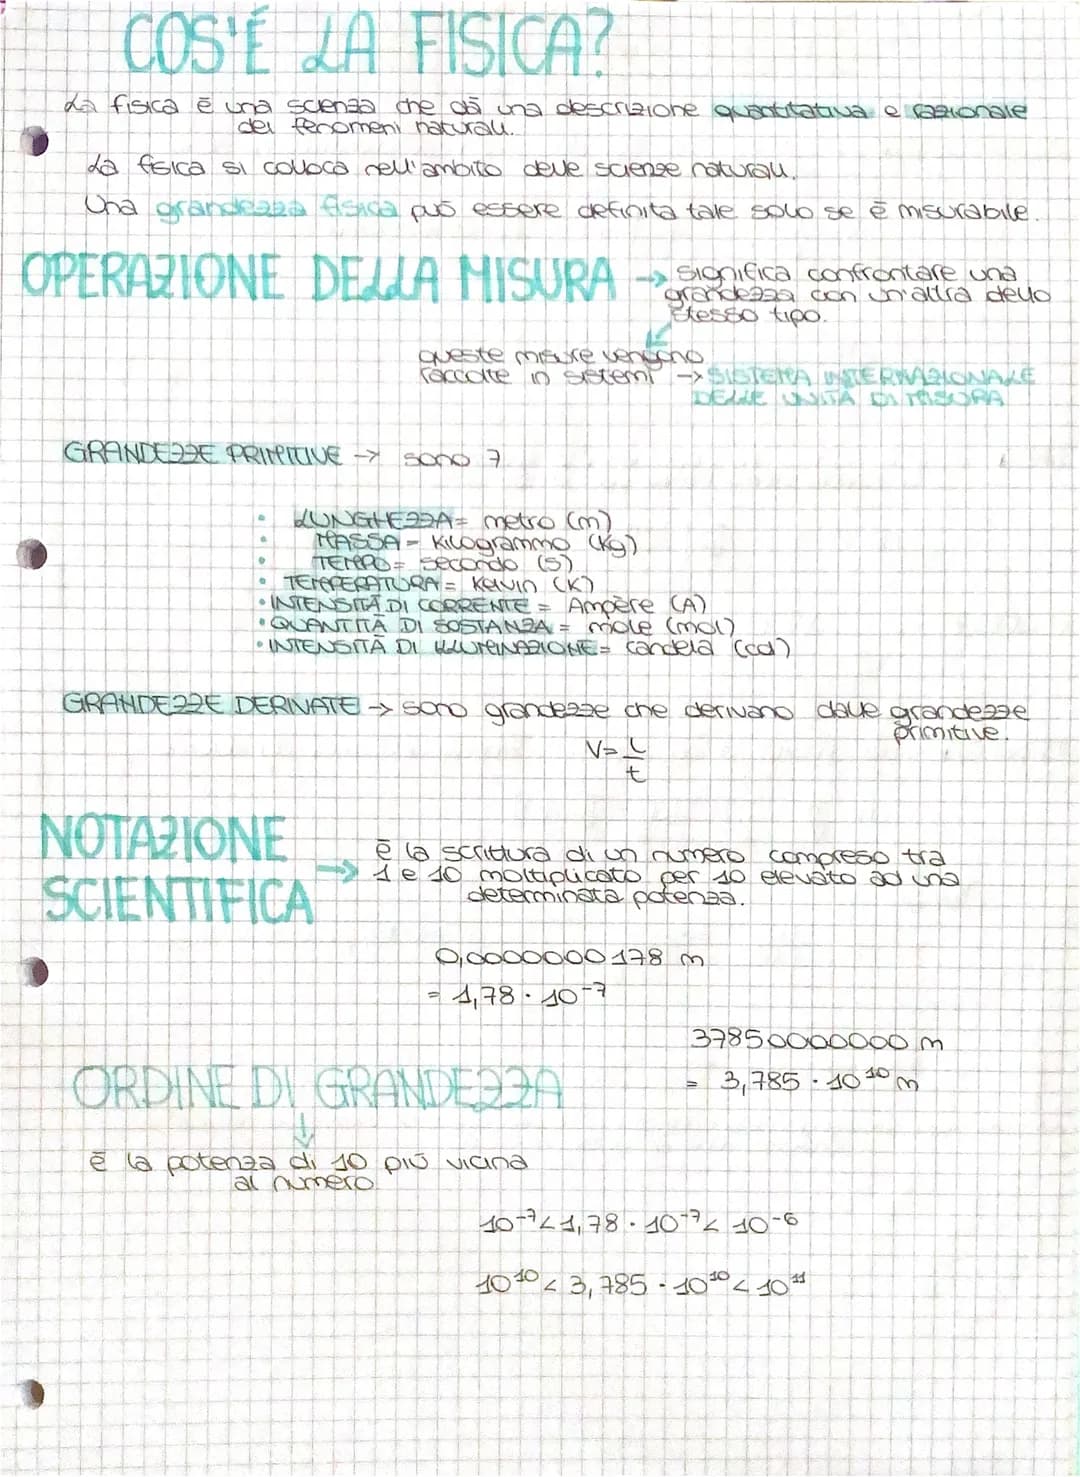 COS'É LA FISICA?
La fisica é una scienza che dá una descrizione quantitativa e razionale
dei fenomeni naturali.
La fisica si colloca nell'ambito delle scienze naturali.
Una grandezza fisica puó essere definita tale solo se é misurabile.
OPERAZIONE DELLA MISURA → significa confrontare una
grandezza con un'altra dello
stesso tipo.
queste misure vengono
raccolte in sistemi → SISTEMA INTERNAZIONALE
DELLE UNITÁ DI MISURA
GRANDEZZE PRIMITIVE → sono 7
• LUNGHEZZA = metro (m)
• MASSA = kilogrammo (kg)
• TEMPO = secondo (s)
• TEMPERATURA = Kelvin (K)
• INTENSITÁ DI CORRENTE = Ampère (A)
• QUANTITÁ DI SOSTANZA = mole (mol)
• INTENSITÁ DI ILLUMINAZIONE = candela (cd)
GRANDEZZE DERIVATE → sono grandezze che derivano dalle grandezze
primitive.
V = L/t
NOTAZIONE
SCIENTIFICA → é la scrittura di un numero compreso tra
1 e 10 moltiplicato per 10 elevato ad una
determinata potenza.
0,0000000178 m
= 1,78 · 10⁻⁷
37850000000 m
= 3,785 · 10¹⁰ m
ORDINE DI GRANDEZZA
↓
é la potenza di 10 piú vicina
al numero
10⁻⁷ < 1,78 · 10⁻⁷ < 10⁻⁶
10¹⁰ < 3,785 · 10¹⁰ < 10¹¹